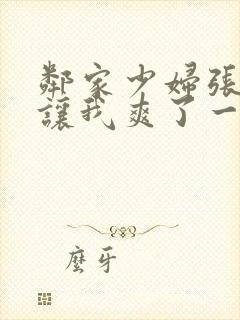 鄰家少婦張
讓我爽了一
麼牙